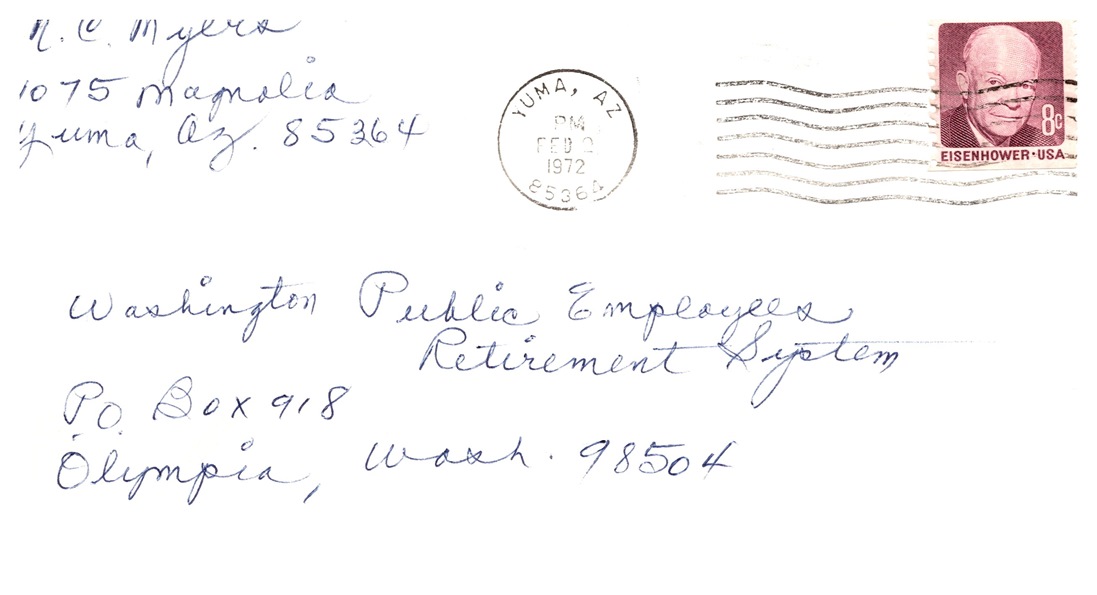 N. C. Myers
1075 Magnolia
Yuma, Az. 85364
YUMA, AZ
PM
FEB 2
1972
85364
8c
EISENHOWER·USA
Washington Public Employees
Retirement System
P.O. Box 918
Olympia, Wash. 98504